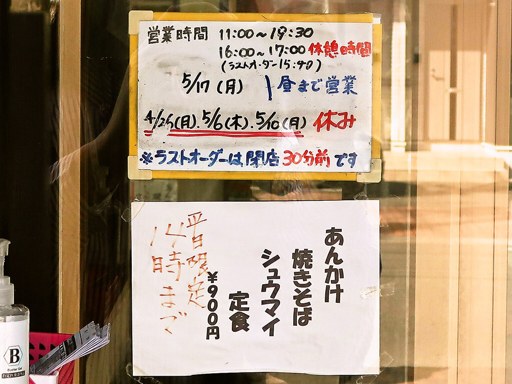 営業時間 11:00～19:30
16:00～17:00 休憩時間
(ラストオーダー15:40)
5/17(月) 昼まで営業
4/25(月).5/6(木).5/10(月) 休み
※ラストオーダーは閉店30分前です
あんかけ
焼きそば
シュウマイ
定食
¥900円
平日限定
14時まで
B